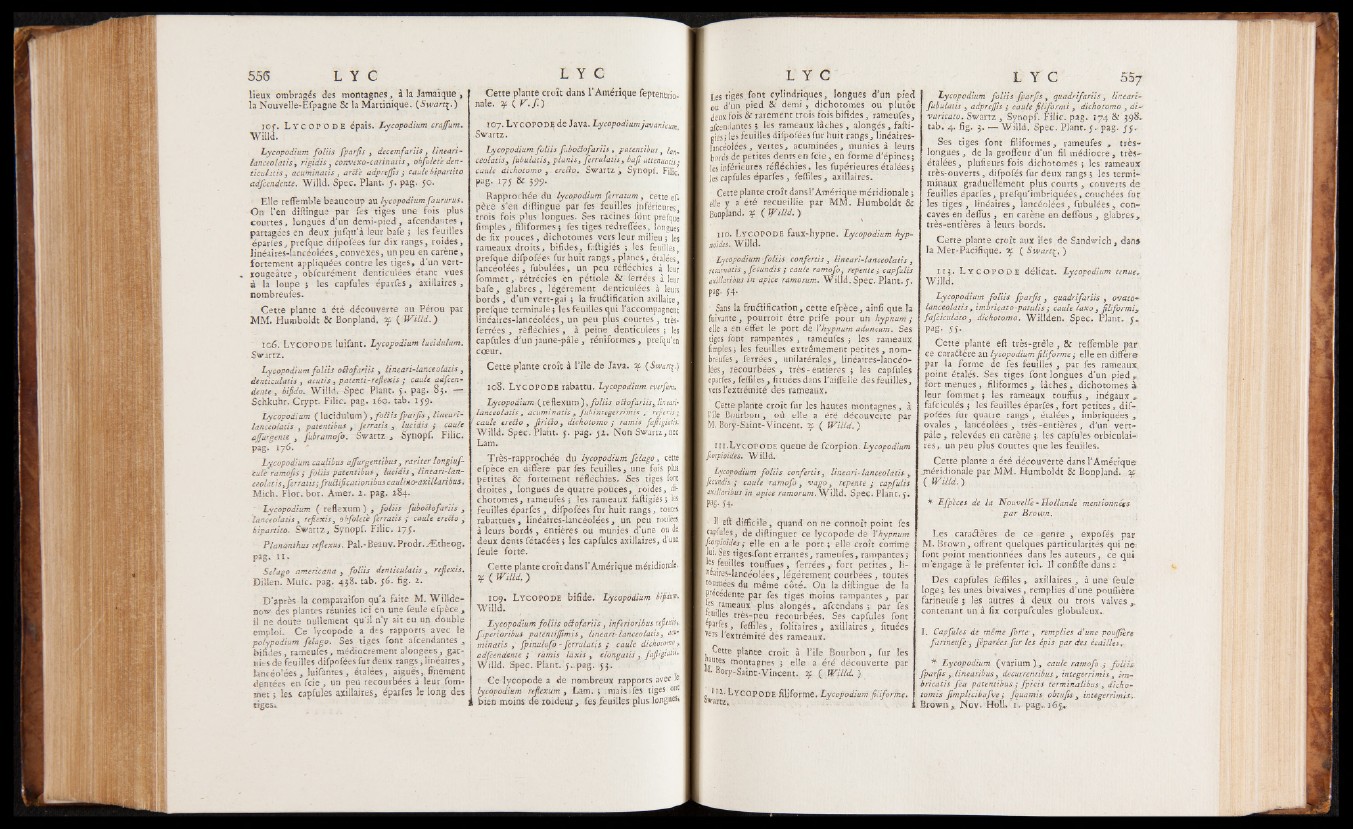 556 L Y C
lieux ombragés des montagnes, à la Jamaïque,
la Nouvelle-Espagne & la Martinique. (Swartz.)
105. LYCOPODE épais. Lycopodium crassum.
Willd.
Lycopodium foliis sparsis, decemfariis, lineari-
lanceolatis, rigidis, convexo-carinatis, obsoletè den-
ticulatis, acuminatis, arctè adpressis ; caule bipartito
adscendente. Willd. Spec. Plant. 5. pag. 50.
Elle ressemble beaucoup au lycopodium saururus.
On l'en distingue par ses tiges une fois plus
courtes, longues d'un demi-pied, ascendantes,
partagées en deux jusqu'à leur base ; les feuilles
éparses, presque disposées sur dix rangs, roides,
linéaires-lancéolées, convexes, un peu en carène,
fortement appliquées contre les tiges, d'un vert-
rougeâtre, obscurément denticulées étant vues
à la loupe ; les capsules éparses, axillaires,
nombreuses.
Cette plante a été découverte au Pérou par
MM. Humboldt & Bonpland. ♃ ( Willd. )
106. LYCOPODE luisant. Lycopodium lucidulum.
Swartz.
Lycopodium foliis octofariis, lineari-lanceolatis,
denticulatis, acutis, patenti-reflexis ; caule adscen-
dente, bifido. Willd. Spec Plant. 5. pag. 83. —
Schkuhr. Crypt. Filic. pag. 160. tab. 159.
Lycopodium (lucidulum), foliis sparsis, lineari-
lanceolatis, patentibus, serratis, lucidis ; caule
assurgente, subramoso. Swartz., Synops. Filic.
pag. 176.
Lycopodium caulibus assurgentibus, rariter longius-
culè ramosis ; foliis patentibus, lucidis, lineari-lan-
ceolatis, serratis ; fructificationibus caulino-axillaribus.
Mich. Flor. bor. Amer. 2. pag. 284.
Lycopodium ( reflexum ), foliis suboctofariis,
lanceolatis, reflexis, obsoletè serratis ; caule erecto,
bipartito. Swartz, Synops. Filic. 175.
Plananthus reflexus. Pal.-Beauv. Prodr. Ætheog.
pag. 11.
Selago americana, foliis denticulatis, reflexis.
Dillen. Musc. pag. 438. tab. 56. fig. 2.
D'après la comparaison qu'a faite M. Willde-
now des plantes réunies ici en une seule espèce,
il ne doute nullement qu'il n'y ait eu un double
emploi. Ce lycopode a des rapports avec le
polypodium selago. Ses tiges sont ascendantes,
bifides, rameuses, médiocrement alongées, gar-
nies de feuilles disposées sur deux rangs, linéaires,
lancéolées, luisantes, étalées, aiguës, finement
dentées en scie, un peu recourbées à leur som-
met ; les capsules axillaires, éparses le long des
tiges.
L Y C
Cette plante croît dans l'Amérique septentrio-
nale. ♃ ( V. s. )
107. LYCOPODE de Java. Lycopodium javanicum.
Swartz.
Lycopodium foliis suboctofariis, patentibus, lan-
ceolatis, subulatis, planis, serrulatis, basi attenuatis ;
caule dichotomo, erecto. Swartz, Synops. Filic.
pag. 175 & 399.
Rapprochée du lycopodium serratum, cette es-
pèce s'en distingue par ses feuilles inférieures,
trois fois plus longues. Ses racines sont presque
simples, filiformes ; ses tiges redressées, longues
de six pouces, dichotomes vers leur milieu ; les
rameaux droits, bifides, fastigiés ; les feuilles,
presque disposées sur huit rangs, planes, étalées,
lancéolées, subulées, un peu réfléchies à leur
sommet, rétrécies en pétiole & serrées à leur
base, glabres, légérement denticulées à leurs
bords, d'un vert-gai ; la fructification axillaire,
presque terminale ; les feuilles qui l'accompagnent
linéaires-lancéolées, un peu plus courtes, très-
serrées, réfléchies, à peine denticulées ; les
capsules d'un jaune-pâle, réniformes, presqu'en
cœur.
Cette plante croît à l'île de Java. ♃ (Swartz.)
108. LYCOPODE rabattu. Lycopodium eversum.
Lycopodium (reflexum), foliis octofariis, lineari-
lanceolatis, acuminatis, subintegerrimis, reflexis ;
caule erecto, stricto, dichotomo ; ramis fastigiatis.
Willd. Spec. Plant. 5. pag. 52. Non Swartz, nec
Lam.
Très-rapprochée du lycopodium selago, cette
espèce en diffère par ses feuilles, une fois plus
petites & fortement réfléchies. Ses tiges sont
droites, longues de quatre pouces, roides, di-
chotomes, rameuses ; les rameaux fastigiés ; les
feuilles éparses, disposées sur huit rangs, toutes
rabattues, linéaires-lancéolées, un peu roulées
à leurs bords, entières ou munies d'une ou de
deux dents sétacées ; les capsules axillaires, d'une
seule sorte.
Cette plante croît dans l'Amérique méridionale.
♃ ( Willd. )
109. LYCOPODE bifide. Lycopodium bifidum.
Willd.
Lycopodium foliis octofariis, inferioribus reflexis,
superioribus patentissimis, lineari-lanceolatis, acu-
minatis, spinuloso-serrulatis ; caule dichotomo,
adscendente ; ramis laxis, elongatis, fastigiatis.
Willd. Spec. Plant. 5. pag. 53.
Ce lycopode a de nombreux rapports avec le
lycopodium reflexum, Lam. ; mais ses tiges ont
bien moins de roideur, ses feuilles plus longues.
L Y C
Les tiges sont cylindriques, longues d'un pied
ou d'un pied & demi, dichotomes ou plutôt
deux fois & rarement trois fois bifides, rameuses,
ascendantes ; les rameaux lâches, alongés, fasti-
giés ; les feuilles disposées sur huit rangs, linéaires-
lancéolées, vertes, acuminées, munies à leurs
bords de petites dents en scie, en forme d'épines ;
les inférieures réfléchies, les supérieures étalées ;
les capsules éparses, sessiles, axillaires.
Cette plante croît dans l'Amérique méridionale ;
elle y a été recueillie par MM. Humboldt &
Bonpland. ♃ ( Willd. )
110. LYCOPODE faux-hypne. Lycopodium hyp-
noides. Willd.
Lycopodium foliis confertis, lineari-lanceolatis,
recurvatis, secundis ; caule ramoso, repente ; capsulis
axillaribus in apice ramorum. Willd. Spec. Plant. 5.
pag. 54.
Sans la fructification, cette espèce, ainsi que la
suivante, pourroit être prise pour un hypnum ;
elle a en effet le port de l'hypnum aduncum. Ses
tiges sont rampantes, rameuses ; les rameaux
simples ; les feuilles extrêmement petites, nom-
breuses, serrées, unilatérales, linéaires-lancéo-
lées, recourbées, très-entières ; les capsules
éparses, sessiles, situées dans l'aisselle des feuilles,
vers l'extrémité des rameaux.
Cette plante croît sur les hautes montagnes, à
l'île Bourbon, où elle a été découverte par
M. Bory-Saint-Vincent. ♃ ( Willd. )
111. LYCOPODE queue de scorpion. Lycopodium
scorpioides. Willd.
Lycopodium foliis confertis, lineari-lanceolatis,
secundis ; caule ramoso, vago, repente ; capsulis
axillaribus in apice ramorum. Willd. Spec. Plant. 5.
pag. 54.
Il est difficile, quand on ne connoît point ses
capsules, de distinguer ce lycopode de l'hypnum
scorpioides ; elle en a le port ; elle croît comme
lui. Ses tiges sont errantes, rameuses, rampantes ;
les feuilles touffues, serrées, fort petites, li-
néaires-lancéolées, légérement courbées, toutes
tournées du même côté. On la distingue de la
précédente par ses tiges moins rampantes, par
les rameaux plus alongés, ascendans ; par ses
feuilles très-peu recourbées. Ses capsules sont
éparses, sessiles, solitaires, axillaires, situées
vers l'extrémité des rameaux.
Cette plante croît à l'île Bourbon, sur les
hautes montagnes ; elle a été découverte par
M. Bory-Saint-Vincent. ♃ ( Willd. )
112. LYCOPODE filiforme. Lycopodium filiforme.
Swartz.
L Y C 557
Lycopodium foliis sparsis, quadrifariis, lineari-
subulatis, adpressis ; caule filiformi, dichotomo, di-
varicato. Swartz, Synops. Filic. pag. 174 & 398.
tab. 4. fig. 3. — Willd. Spec. Plant. 5. pag. 55.
Ses tiges sont filiformes, rameuses, très-
longues, de la grosseur d'un fil médiocre, très-
étalées, plusieurs fois dichotomes ; les rameaux
très-ouverts, disposés sur deux rangs ; les termi-
minaux graduellement plus courts, couverts de
feuilles éparses, presqu'imbriquées, couchées sur
les tiges, linéaires, lancéolées, subulées, con-
caves en dessus, en carène en dessous, glabres,
très-entières à leurs bords.
Cette plante croît aux îles de Sandwich, dans
la Mer-Pacifique. ♃ ( Swartz. )
113. LYCOPODE délicat. Lycopodium tenue.
Willd.
Lycopodium foliis sparsis, quadrifariis, ovato-
lanceolatis, imbricato-patulis ; caule laxo, filiformi,
fasciculato, dichotomo. Willden. Spec. Plant. 5.
pag. 55.
Cette plante est très-grêle, & ressemble par
ce caractère au lycopodium filiforme ; elle en diffère
par la forme de ses feuilles, par ses rameaux
point étalés. Ses tiges sont longues d'un pied,
fort menues, filiformes, lâches, dichotomes à
leur sommet ; les rameaux touffus, inégaux,
fasciculés ; les feuilles éparses, fort petites, dis-
posées sur quatre rangs, étalées, imbriquées,
ovales, lancéolées, très-entières, d'un vert-
pâle, relevées en carène ; les capsules orbiculai-
res, un peu plus courtes que les feuilles.
Cette plante a été découverte dans l'Amérique
méridionale par MM. Humboldt & Bonpland. ♃
( Willd. )
* Espèces de la Nouvelle-Hollande mentionnées
par Brown.
Les caractères de ce genre, exposés par
M. Brown, offrent quelques particularités qui ne
sont point mentionnées dans les auteurs, ce qui
m'engage à le présenter ici. Il consiste dans :
Des capsules sessiles, axillaires, à une seule
loge ; les unes bivalves, remplies d'une poussière
farineuse ; les autres à deux ou trois valves,
contenant un à six corpuscules globuleux.
I. Capsules de même sorte, remplies d'une poussière
farineuse, séparées sur les épis par des écailles.
* Lycopodium (varium), caule ramoso ; foliis
sparsis, linearibus, decurrentibus, integerrimis, im-
bricatis seu patentibus ; spicis terminalibus, dicho-
tomis simplicibusve ; squamis obtusis, integerrimis.
Brown, Nov. Holl. 1. pag. 165.